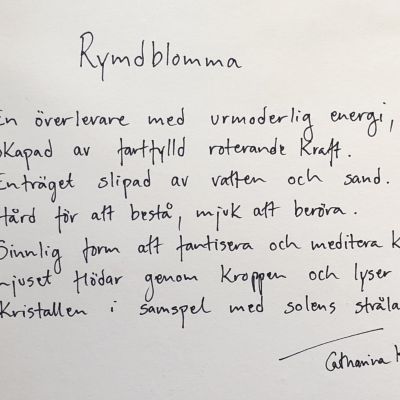 Rymdblomma
En överlevare med urmoderlig energi,
skapad av fartfylld roterande kraft.
Enträget slipad av vatten och sand.
Hård för att bestå, mjuk att beröra.
Sinnlig form att fantisera och meditera k
Ljuset flödar genom kroppen och lyser
Kristallen i samspel med solens stråla
Catharina K